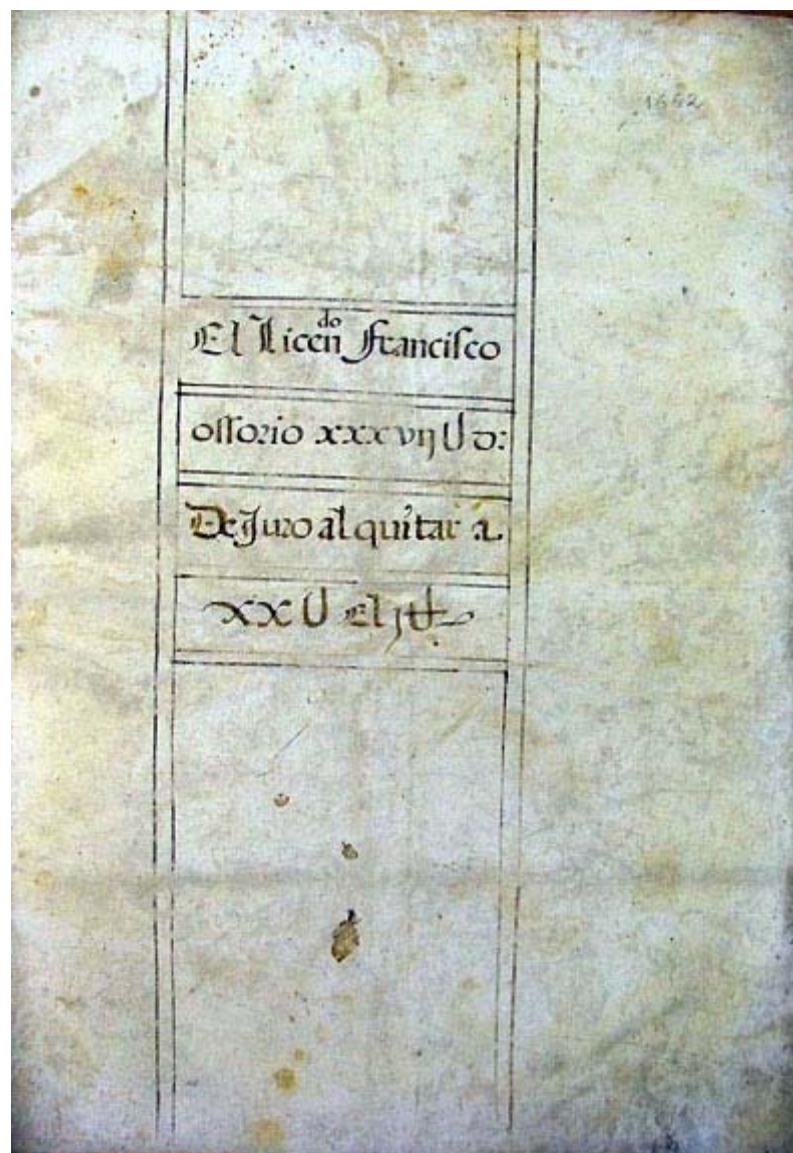 1662
El Licen^do Francisco
ossorio xxxvij U d:
De Juro al quitar a
xx U El